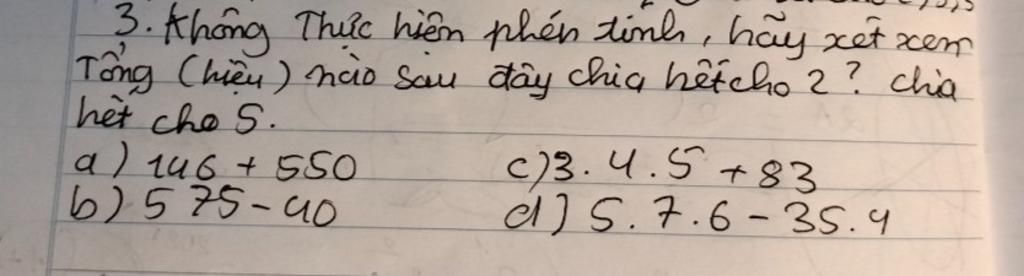 3. Không Thực hiện phén tính, hãy xét xem
Tổng (hiệu) nào sau đây chia hết cho 2? chia
hết cho 5.
a) 146 + 550 c) 3. 4. 5 + 83
b) 575 - 40 d) 5. 7. 6 - 35. 4